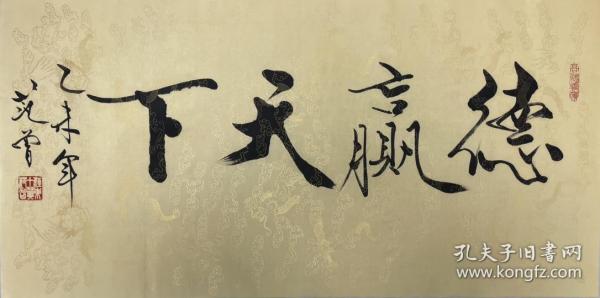 德贏天下
乙未年
范曾
孔夫子旧书网
www.kongfz.com